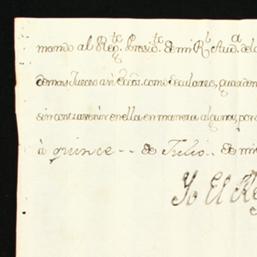 mando al Reg.te Presid.te de mi R.l Aud.a de la
demas Jueces asi Eccos. como Seculares, guarden
sin contravenir en ella en manera alguna, por
à quince -- de Julio .. de mil
Yo El Re